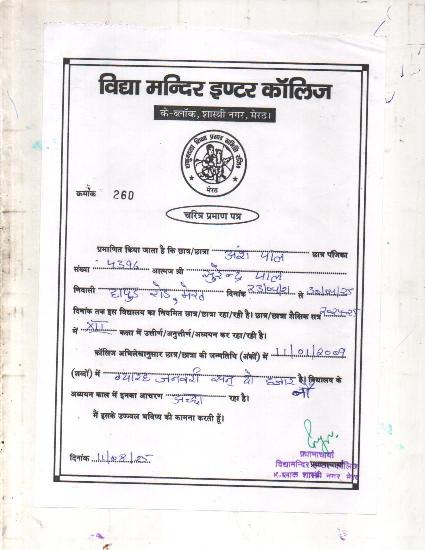 विद्या मन्दिर इण्टर कॉलिज
के-ब्लॉक, शास्त्री नगर, मेरठ।
मेरठ
क्रमाँक 260
चरित्र प्रमाण पत्र
प्रमाणित किया जाता है कि छात्र/छात्रा अंश पाल छात्र पंजिका
संख्या 4396 आत्मज श्री सुरेन्द्र पाल
निवासी हापुड़ रोड, मेरठ दिनांक से
दिनांक तक इस विद्यालय का नियमित छात्र/छात्रा रही है। छात्र/छात्रा शैक्षिक सत्र
में XII कक्षा में उत्तीर्ण/अनुत्तीर्ण/अध्ययन कर रहा/रही है।
कॉलिज अभिलेखानुसार छात्र/छात्रा की जन्मतिथि (अंकों) में 11/01/2009
(शब्दों) में ग्यारह जनवरी सन् दो हजार नौ है। विद्यालय के
अध्ययन काल में इनका आचरण अच्छा रहा है।
मैं इसके उज्ज्वल भविष्य की कामना करती हूँ।
दिनांक 11/08/25
प्रधानाचार्या
विद्यामन्दिर कॉलिज
के-ब्लाक शास्त्री नगर मेरठ